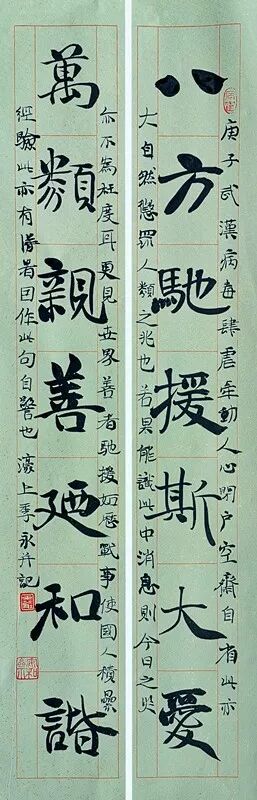 庚子武漢病毒肆虐牽動人心閉户空齋自省此亦
八方馳援斯大愛
大自然懲罰人類之兆也若果能識此中消息則今日之災
亦不為枉度耳更見世界善者馳援如歷戰事使國人積纍
萬類親善廼和諧
經驗此亦有者因作此句自警也 濠上季永并記